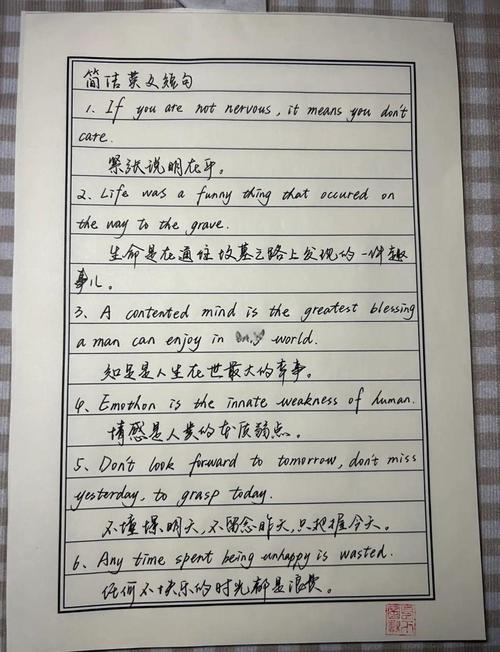 简洁英文短句
1、If you are not nervous, it means you don't
care.
紧张说明在乎。
2、Life was a funny thing that occured on
the way to the grave.
生命是在通往坟墓之路上发现的一件趣
事儿。
3、A contented mind is the greatest blessing
a man can enjoy in world.
知足是人生在世最大的幸事。
4、Emothon is the innate weakness of human.
情感是人类的本质弱点。
5、Don't look forward to tomorrow, don't miss
yesterday, to grasp today.
不憧憬明天,不留念昨天,只把握今天。
6、Any time spent being unhappy is wasted.
任何不快乐的时光都是浪费。